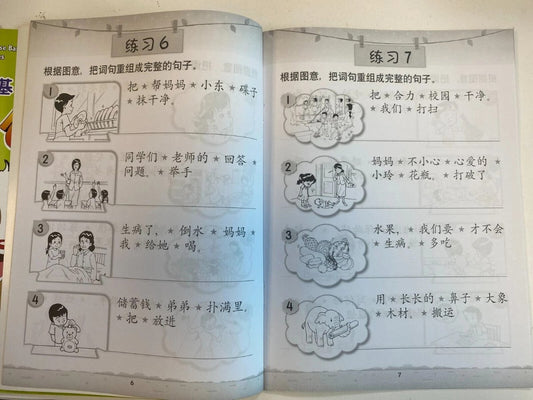 练习6
根据图意，把词句重组成完整的句子。
1
把 * 帮妈妈 * 小东 * 碟子
* 抹干净。
2
同学们 * 老师的 * 回答 *
问题。 * 举手
3
生病了， * 倒水 * 妈妈 *
我 * 给她 * 喝。
4
储蓄钱 * 弟弟 * 扑满里。
* 把 * 放进
6
练习7
根据图意，把词句重组成完整的句子。
1
把 * 合力 * 校园 * 干净。
* 我们 * 打扫
2
妈妈 * 不小心 * 心爱的 *
小玲 * 花瓶。 * 打破了
3
水果， * 我们要 * 才不会
* 生病。 * 多吃
4
用 * 长长的 * 鼻子 * 大象
* 木材。 * 搬运
7